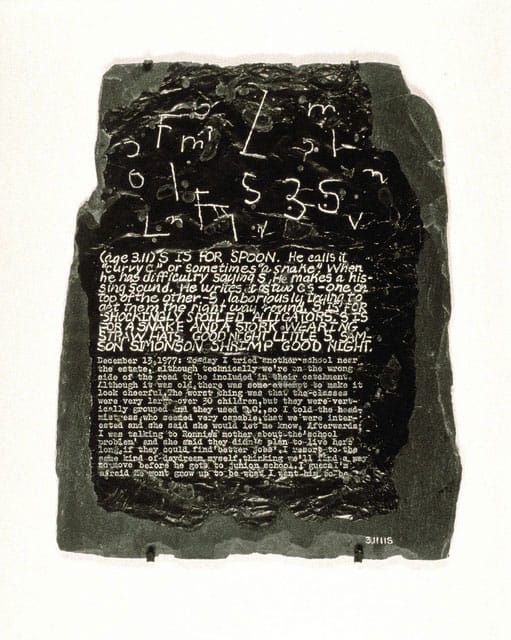 (age 3.11) S IS FOR SPOON. He calls it
"curvy c", or sometimes "a snake". When
he has difficulty saying S, he makes a his-
sing sound. He writes it as two cs - one on
top of the other - S, laboriously trying to
get them the right way round. S IS FOR
SHOCKINGLY SPOILED ALLIGATORS. S IS
FOR A SNAKE AND A STORK WEARING
STRAW HATS. GOOD NIGHT LITTLE
SON SIMONSON SHRIMP GOOD NIGHT.
December 13,1977: Today I tried another school near
the estate, although technically we're on the wrong
side of the road to be included in their catchment.
Although it was old, there was some attempt to make it
look cheerful. The worst thing was that the classes
were very large - over 30 children, but they were vert-
ically grouped and they used so I told the head-
mistress, who seemed very capable, that we were inter-
ested and she said she would let me know. Afterwards
I was talking to Ronnie's mother about 'the school
problem' and she said they didn't plan to live here
long, if they could find 'better jobs'. I resort to the
same kind of daydream myself, thinking we'll find a way
to move before he gets to junior school. I guess I'm
afraid he wont grow up to be what I want him to be
3.111S